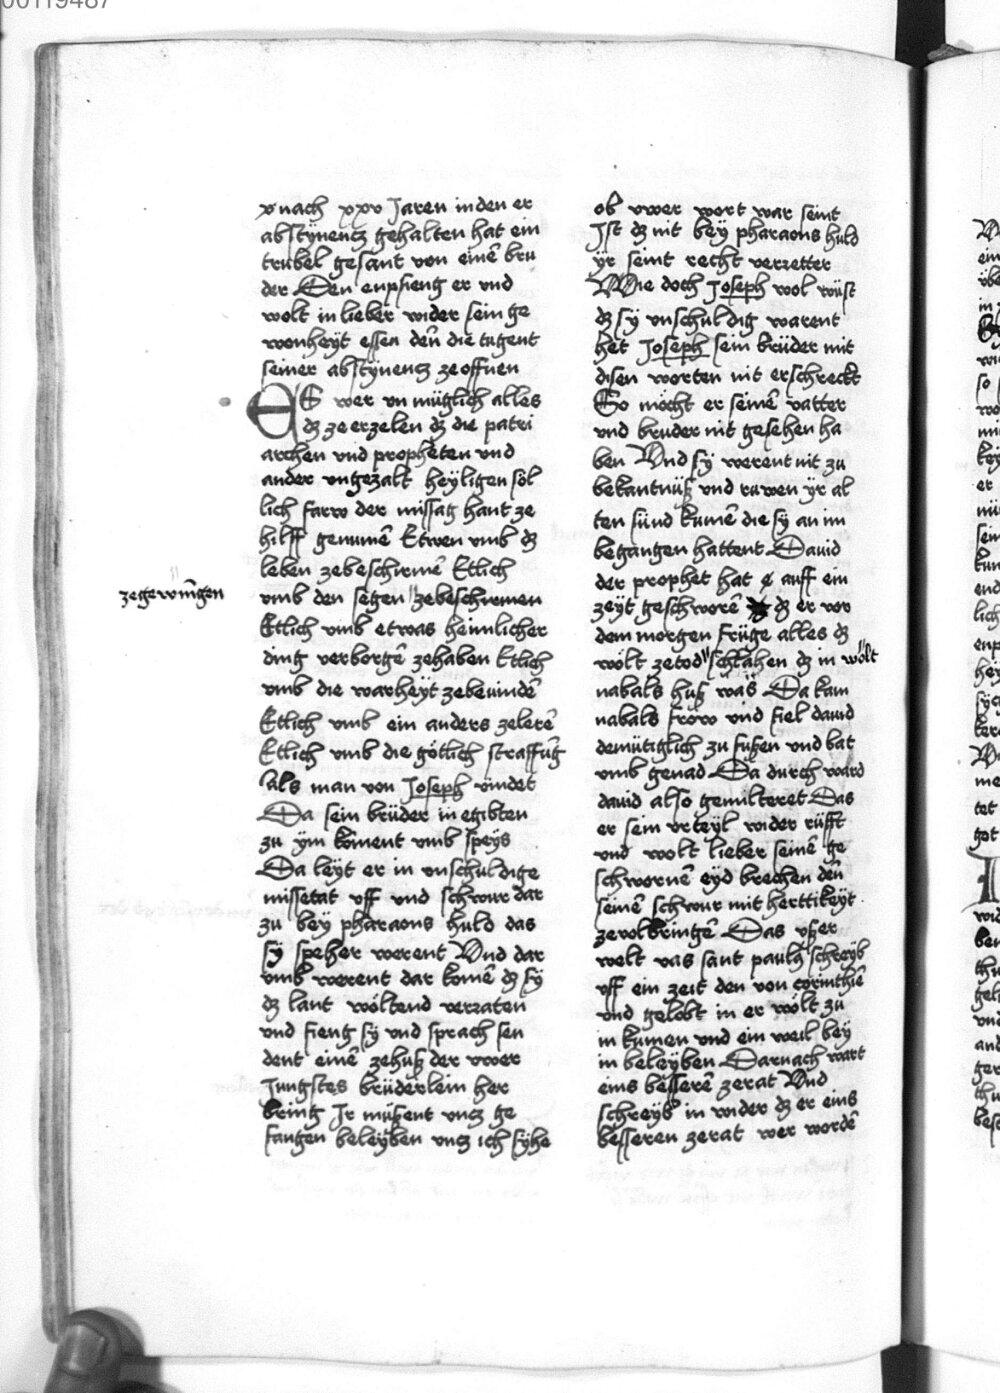 00119487
v nach xxv Jaren in den er
abstÿnencz gehalten hat ein
trubel gesant von einē bru
der Den enpfieng er vnd
wolt in lieber wider sein ge
wonheÿt essen deñ die tugent
seiner abstÿnencz ze offnen
ES wer vn müglich alles
dz ze erzelen dz die patri
archen vnd propheten vnd
ander vngezalt heÿligen söl
lich farw der missag hant ze
hilff genumē Etwen vmb dz
leben zebeschirmē Etlich
vmb den segen "zebeschirmen
"
zegewiñgen
Etlich vmb etwas heimlicher
ding verborgē zehaben Etlich
vmb die warheÿt zebevindē
Etlich vmb ein anders zelerē
Etlich vmb die götlich straffūg
Als man von Joseph vindet
Da sein brüder in egibten
zu ÿm kōment vmb speÿs
Da leÿt er in vnschuldige
missetat vff vnd schwur dar
zu beÿ pharaons huld das
sÿ speher werent Vnd dar
vmb werent dar komē dz sÿ
dz lant wöltend verraten
vnd fieng sÿ vnd sprach sen
dent einē zehuß der vwer
Jungstes brüderlein her
bring Jr müßent vncz ge
fangen beleÿben vncz ich sÿhe
ob vwer wort war seint
Jst dz nit beÿ pharaons huld
ÿr seint recht verretter
Wie doch Joseph wol wüst
dz sÿ vnschuldig warent
het Joseph sein brüder mit
disen worten nit erschreckt
So möcht er seinē vatter
vnd bruder nit gesehen ha
ben Vnd sÿ werent nit zu
bekantnüß vnd ruwen ÿr al
ten sünd kumē die sÿ an im
begangen hattent Dauid
der prophet hat auff ein
zeÿt geschworē dz er vor
dem morgen früge alles dz
wölt zetod "schlahen dz in wölt
nabals huß was Da kam
nabals frow vnd fiel dauid
demütiglich zu fußen vnd bat
vmb genad Da durch ward
dauid also gemilteret Das
er sein vrteÿl wider rüfft
vnd wolt lieber seinē ge
schwornē eÿd brechen deñ
seinē schwur mit herttikeÿt
zevolbringē Das vßer
welt vas sant pauls schreÿb
vff ein zeit den von corinthiē
vnd gelobt in er wölt zu
in kumen vnd ein weil beÿ
in beleÿben Darnach wart
eins besserē zerat Vnd
schreÿb in wider dz er eins
besseren zerat wer wordē